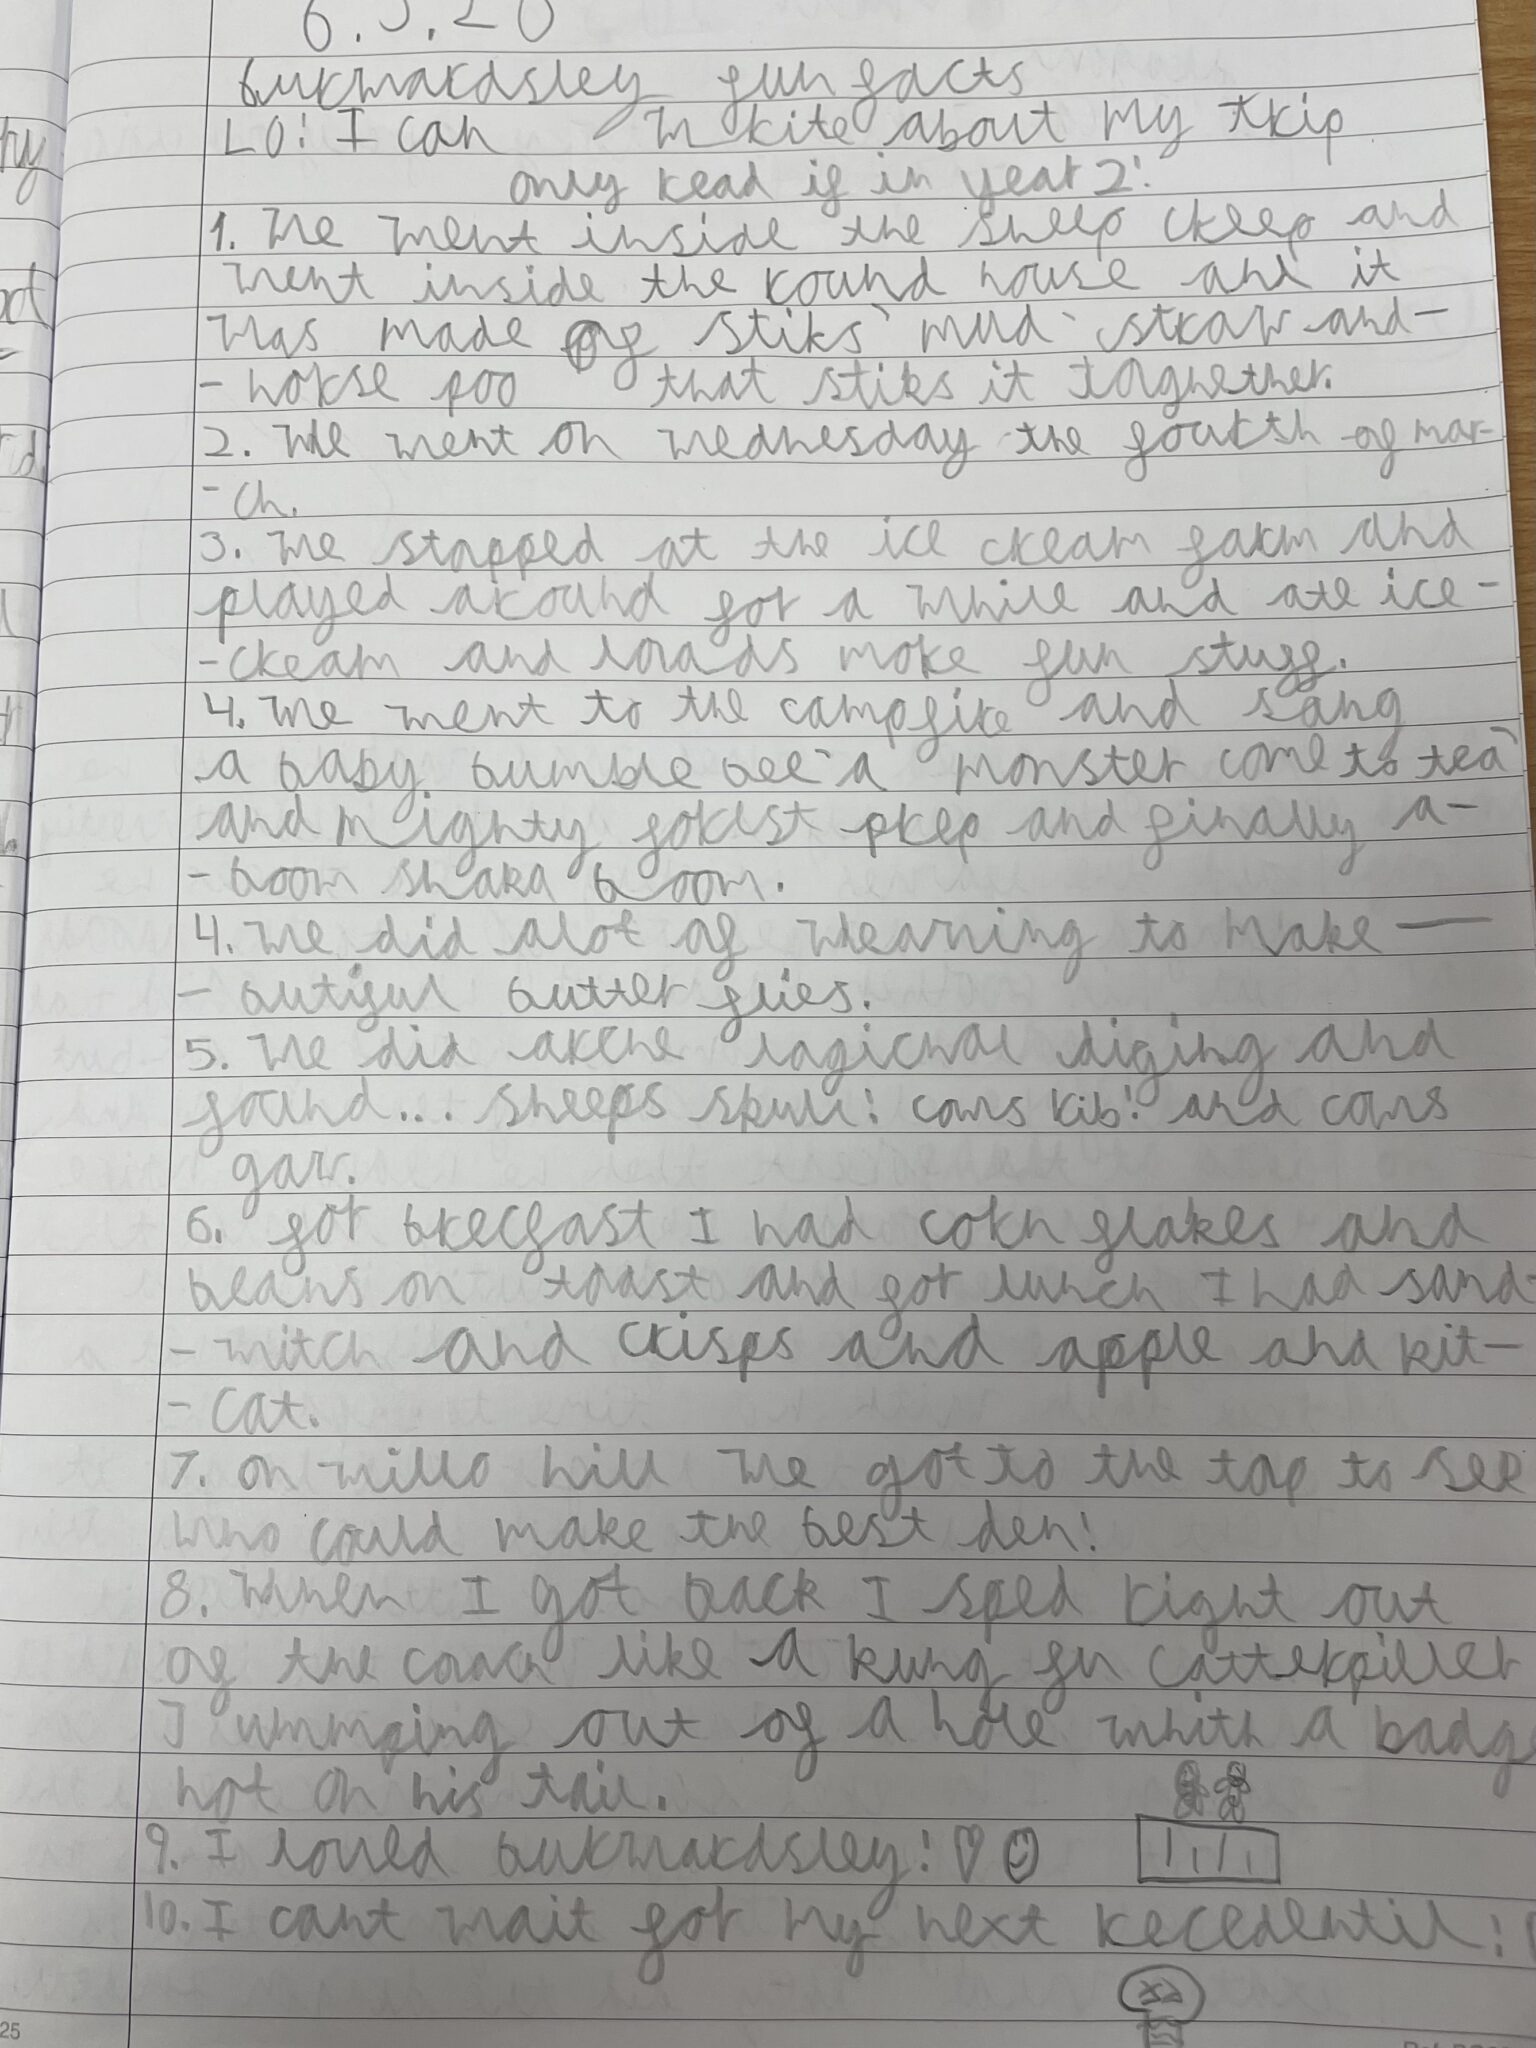 6.3.20
burwardsley fun facts
LO: I can write about my trip
only read if in year 2!
1. We went inside the sheep creep and
went inside the round house and it
was made of stiks, mud, straw and-
-horse poo that stiks it toghether.
2. We went on wednesday the fourth of mar-
-ch.
3. We stopped at the ice cream farm and
played around for a while and ate ice-
-cream and loads more fun stuff.
4. We went to the campfire and sang
a baby bumble bee, a monster come to tea,
and mighty forest prep and finally a-
-boom shaka boom.
4. We did alot of wlearning to make —
- butiful butter flies.
5. We did arche lagichal diging and
found... sheeps skull! cows rib! and cows
gaw.
6. for brecfast I had corn flakes and
beans on toast and for lunch I had sand-
-witch and crisps and apple and kit-
-cat.
7. on willo hill we got to the top to see
who could make the best den!
8. When I got back I sped right out
of the coach like a kung fu catterpiller
Jummping out of a hole whith a badge
hot on his tail.
9. I loved burwardsley!
10. I cant wait for my next recedentil!
25